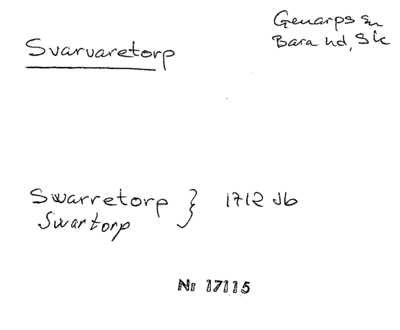 Svarvaretorp
Genarps sn
Bara hd, Sk
Swarretorp } 1712 Jb
Swartorp
Nr 17115